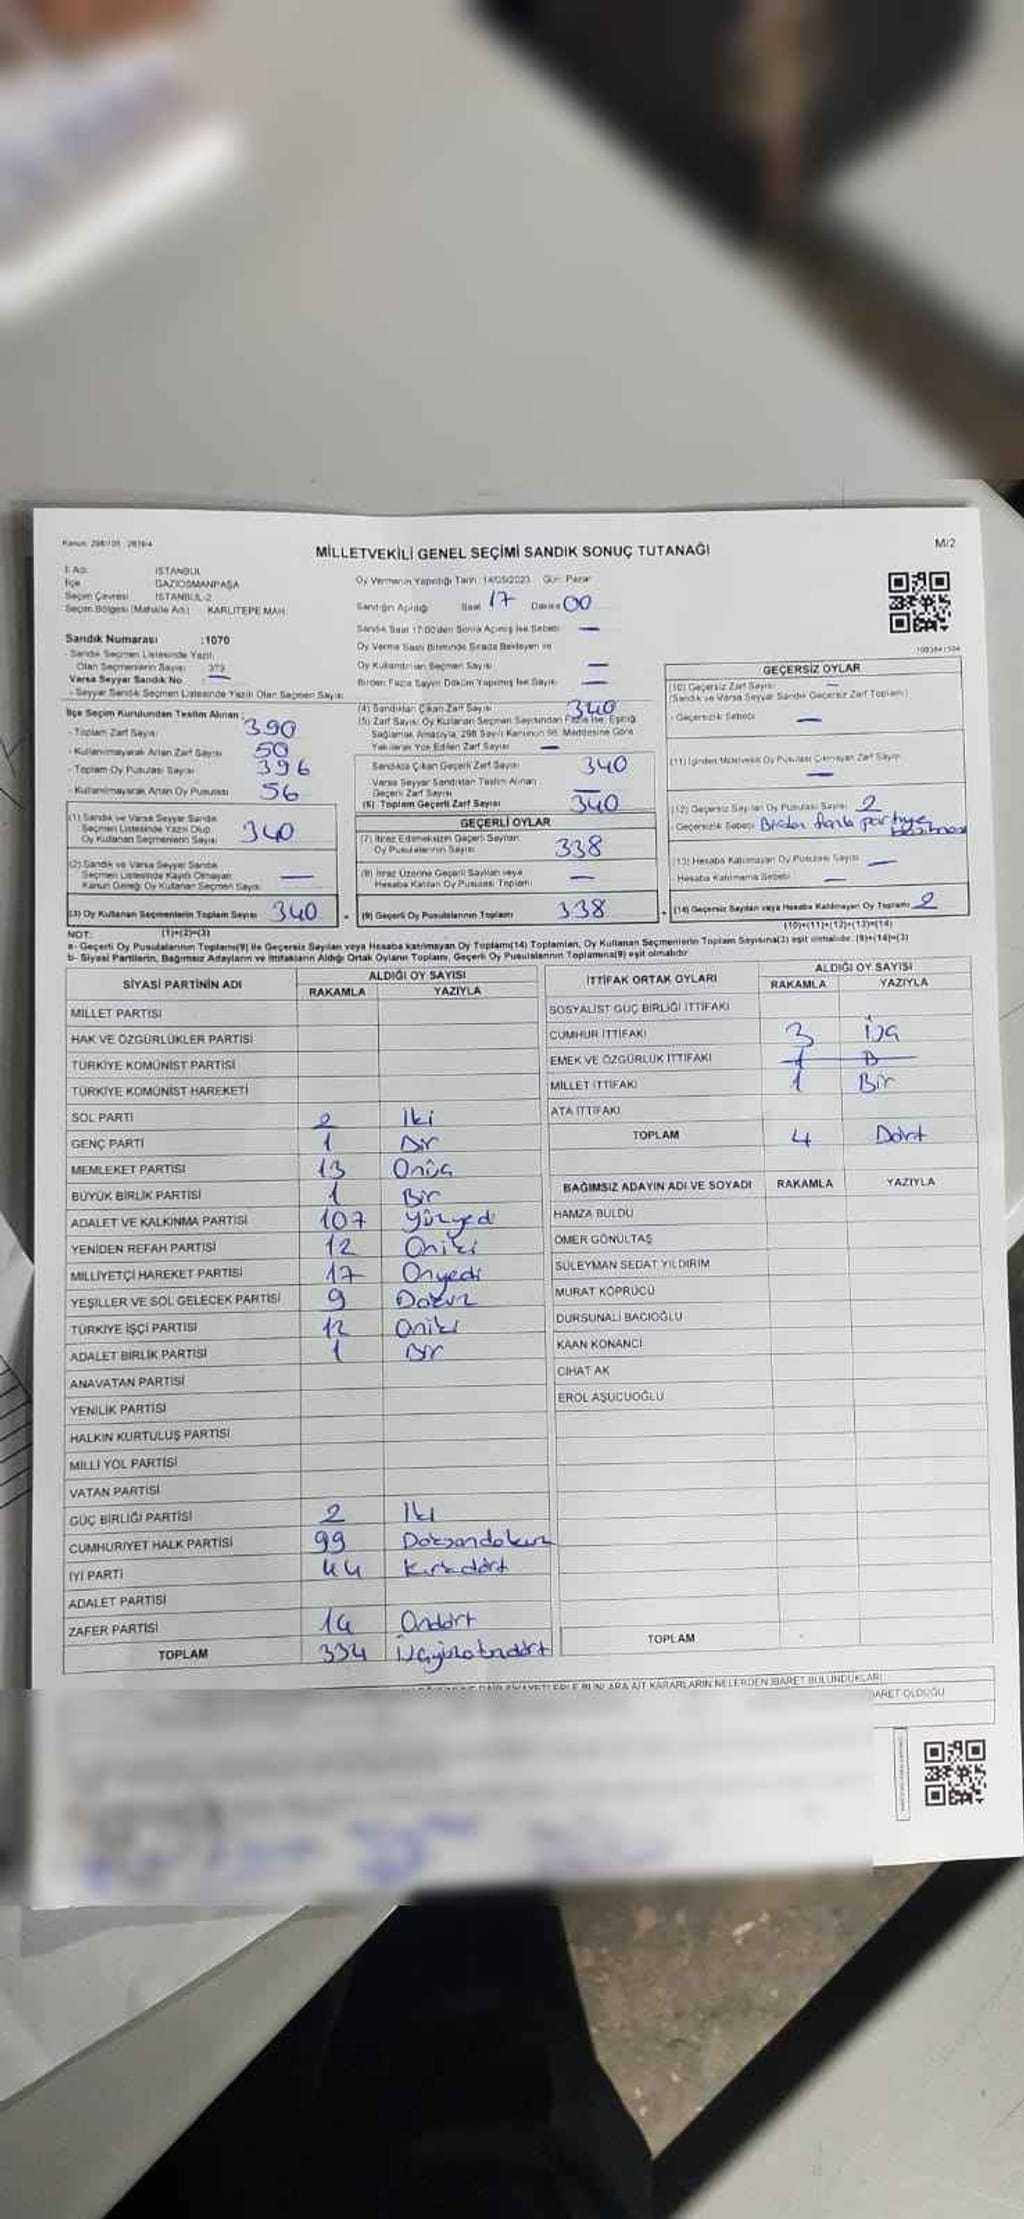 Kanun: 298/105 ; 2839/4
MİLLETVEKİLİ GENEL SEÇİMİ SANDIK SONUÇ TUTANAĞI
M/2
İl Adı İSTANBUL
İlçe GAZİOSMANPAŞA
Seçim Çevresi İSTANBUL-2
Seçim Bölgesi (Mahalle Adı) KARLITEPE MAH.
Oy Vermenin Yapıldığı Tarih: 14/05/2023 Gün: Pazar
Sandığın Açıldığı Saat 17 Dakika 00
Sandık Saat 17:00'den Sonra Açılmış İse Sebebi —
Oy Verme Saati Bitiminde Sırada Bekleyen ve
Oy Kullandırılan Seçmen Sayısı —
Birden Fazla Sayım Döküm Yapılmış İse Sayısı —
Sandık Numarası :1070
- Sandık Seçmen Listesinde Yazılı
Olan Seçmenlerin Sayısı 373
Varsa Seyyar Sandık No —
- Seyyar Sandık Seçmen Listesinde Yazılı Olan Seçmen Sayısı
İlçe Seçim Kurulundan Teslim Alınan
- Toplam Zarf Sayısı 390
- Kullanılmayarak Artan Zarf Sayısı 50
- Toplam Oy Pusulası Sayısı 396
- Kullanılmayarak Artan Oy Pusulası 56
(1) Sandık ve Varsa Seyyar Sandık
Seçmen Listesinde Yazılı Olup
Oy Kullanan Seçmenlerin Sayısı 340
(2) Sandık ve Varsa Seyyar Sandık
Seçmen Listesinde Kaydı Olmayan
Kanun Gereği Oy Kullanan Seçmen Sayısı —
(3) Oy Kullanan Seçmenlerin Toplam Sayısı 340
(1)+(2)=(3)
(4) Sandıktan Çıkan Zarf Sayısı 340
(5) Zarf Sayısı Oy Kullanan Seçmen Sayısından Fazla İse, Eşitliği
Sağlamak Amacıyla, 298 Sayılı Kanunun 98. Maddesine Göre
Yakılarak Yok Edilen Zarf Sayısı —
Sandıkta Çıkan Geçerli Zarf Sayısı 340
Varsa Seyyar Sandıktan Teslim Alınan
Geçerli Zarf Sayısı —
(6) Toplam Geçerli Zarf Sayısı 340
GEÇERLİ OYLAR
(7) İtiraz Edilmeksizin Geçerli Sayılan
Oy Pusulalarının Sayısı 338
(8) İtiraz Üzerine Geçerli Sayılan veya
Hesaba Katılan Oy Pusulası Toplamı —
(9) Geçerli Oy Pusulalarının Toplamı 338
GEÇERSİZ OYLAR
(10) Geçersiz Zarf Sayısı —
(Sandık ve Varsa Seyyar Sandık Geçersiz Zarf Toplamı)
- Geçersizlik Sebebi —
(11) İçinden Milletvekili Oy Pusulası Çıkmayan Zarf Sayısı
—
(12) Geçersiz Sayılan Oy Pusulası Sayısı 2
- Geçersizlik Sebebi Birden fazla partiye
(13) Hesaba Katılmayan Oy Pusulası Sayısı —
- Hesaba Katılmama Sebebi —
(14) Geçersiz Sayılan veya Hesaba Katılmayan Oy Toplamı 2
(10)+(11)+(12)+(13)=(14)
NOT:
a- Geçerli Oy Pusulalarının Toplamı(9) ile Geçersiz Sayılan veya Hesaba katılmayan Oy Toplamı(14) Toplamları, Oy Kullanan Seçmenlerin Toplam Sayısına(3) eşit olmalıdır. (9)+(14)=(3)
b- Siyasi Partilerin, Bağımsız Adayların ve İttifakların Aldığı Ortak Oyların Toplamı, Geçerli Oy Pusulalarının Toplamına(9) eşit olmalıdır
SİYASİ PARTİNİN ADI ALDIĞI OY SAYISI
RAKAMLA YAZIYLA
MİLLET PARTİSİ
HAK VE ÖZGÜRLÜKLER PARTİSİ
TÜRKİYE KOMÜNİST PARTİSİ
TÜRKİYE KOMÜNİST HAREKETİ
SOL PARTİ 2 İki
GENÇ PARTİ 1 Bir
MEMLEKET PARTİSİ 13 Onüç
BÜYÜK BİRLİK PARTİSİ 1 Bir
ADALET VE KALKINMA PARTİSİ 107 Yüzyedi
YENİDEN REFAH PARTİSİ 12 Oniki
MİLLİYETÇİ HAREKET PARTİSİ 17 Onyedi
YEŞİLLER VE SOL GELECEK PARTİSİ 9 Dokuz
TÜRKİYE İŞÇİ PARTİSİ 12 Oniki
ADALET BİRLİK PARTİSİ 1 Bir
ANAVATAN PARTİSİ
YENİLİK PARTİSİ
HALKIN KURTULUŞ PARTİSİ
MİLLİ YOL PARTİSİ
VATAN PARTİSİ
GÜÇ BİRLİĞİ PARTİSİ 2 İki
CUMHURİYET HALK PARTİSİ 99 Doksandokuz
İYİ PARTİ 44 Kırkdört
ADALET PARTİSİ
ZAFER PARTİSİ 14 Ondört
TOPLAM 334 Üçyüzotuzdört
İTTİFAK ORTAK OYLARI ALDIĞI OY SAYISI
RAKAMLA YAZIYLA
SOSYALİST GÜÇ BİRLİĞİ İTTİFAKI
CUMHUR İTTİFAKI 3 Üç
EMEK VE ÖZGÜRLÜK İTTİFAKI 1 B
MİLLET İTTİFAKI 1 Bir
ATA İTTİFAKI
TOPLAM 4 Dört
BAĞIMSIZ ADAYIN ADI VE SOYADI RAKAMLA YAZIYLA
HAMZA BULDU
ÖMER GÖNÜLTAŞ
SÜLEYMAN SEDAT YILDIRIM
MURAT KÖPRÜCÜ
DURSUNALİ BACIOĞLU
KAAN KONANCİ
CİHAT AK
EROL AŞUCUOĞLU
TOPLAM
ARA AİT KARARLARIN NELERDEN İBARET BULUNDUKLARI
BARET OLDUĞU